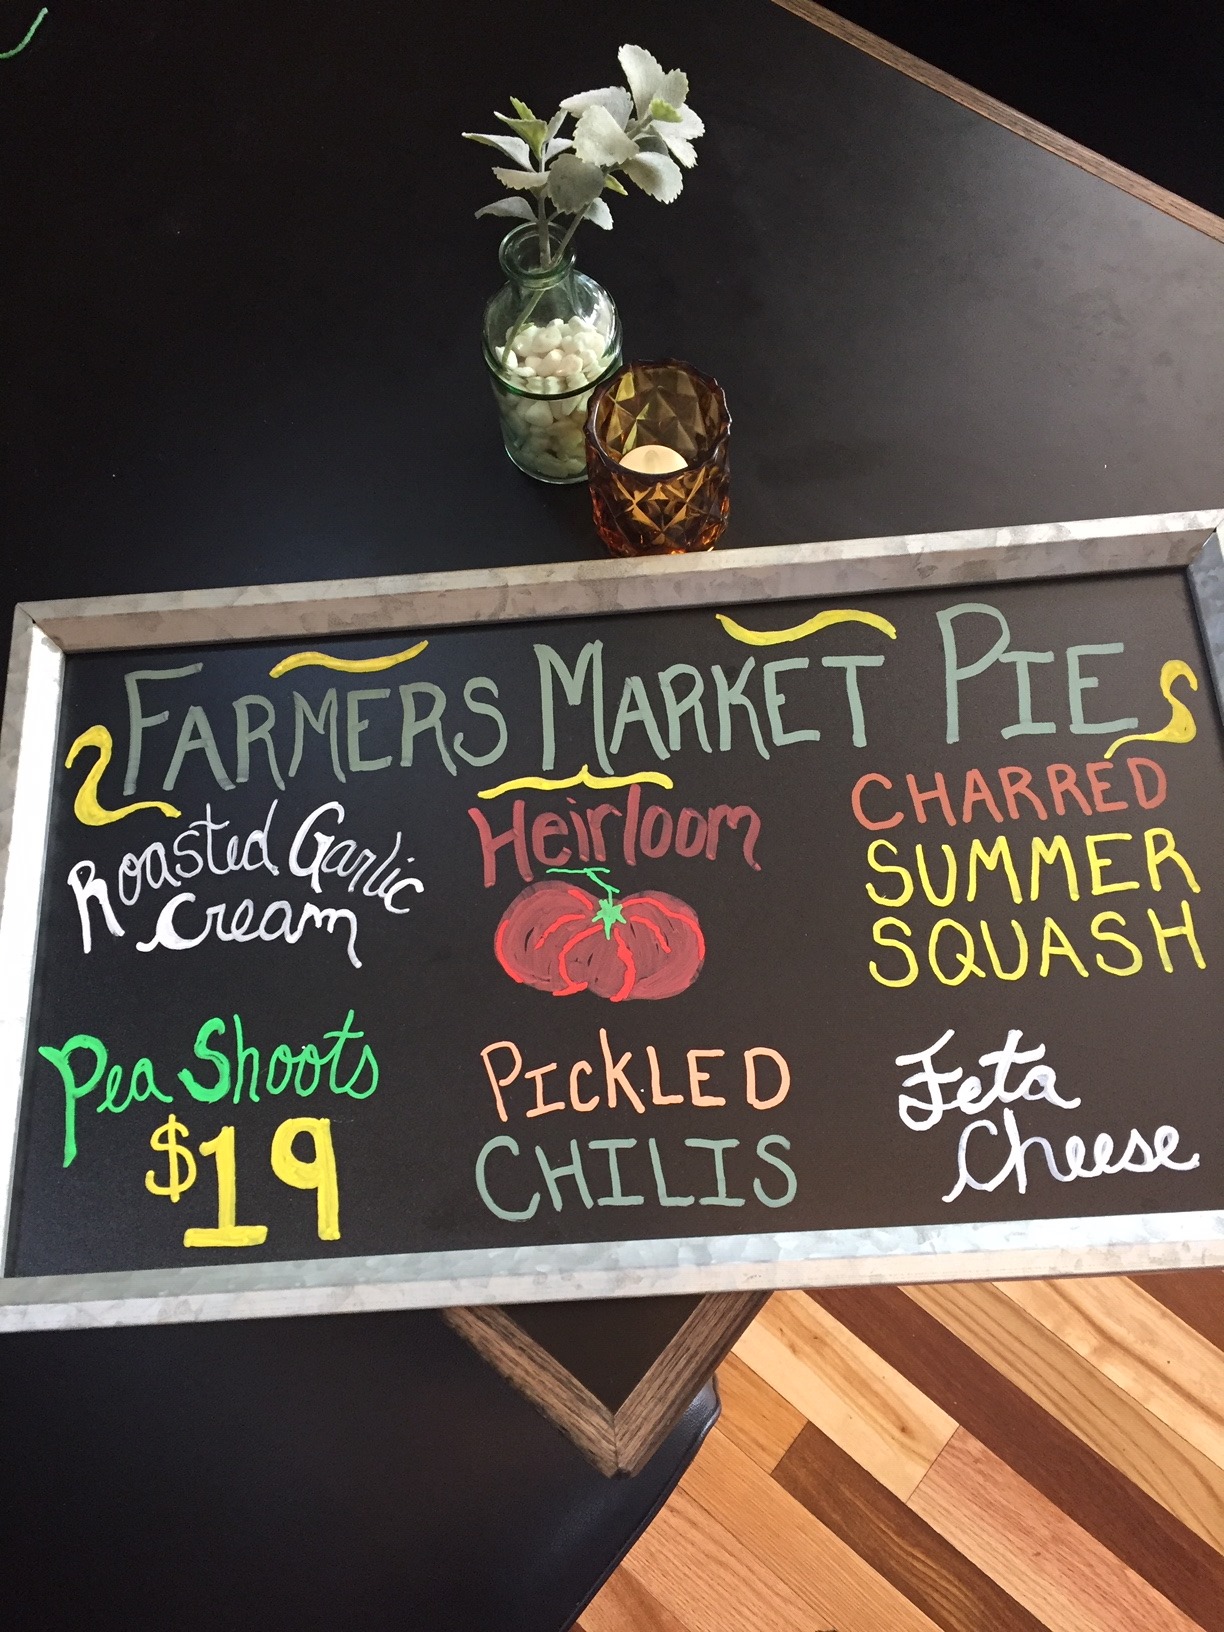 FARMERS MARKET PIE
Roasted Garlic
Cream
Heirloom
CHARRED
SUMMER
SQUASH
Pea Shoots
$19
PICKLED
CHILIS
Feta
Cheese